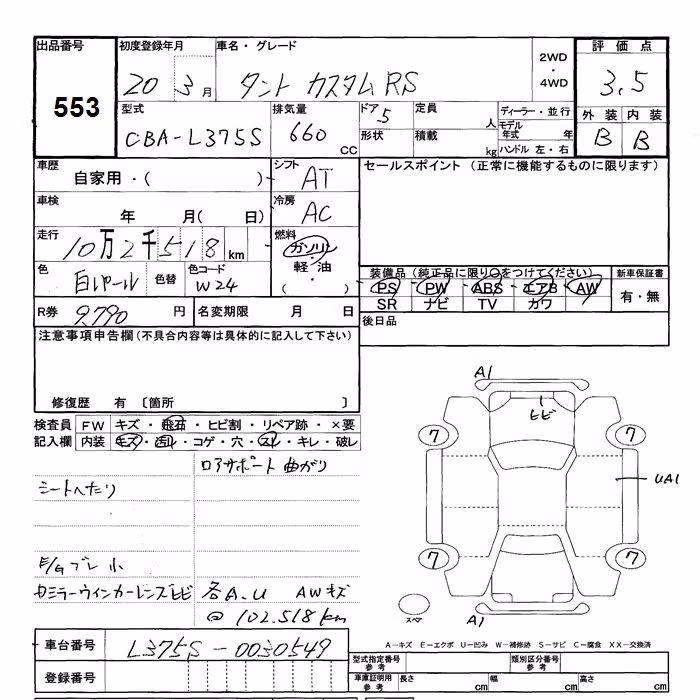 出品番号 初度登録年月 車名・グレード 2WD・4WD 評価点
553 20 3月 タント カスタムRS 3.5
型式 排気量 ドア 定員 ディーラー・並行 外装 内装
CBA-L375S 660 CC 5 人 モデル年式 年 B B
形状 積載 kg ハンドル 左・右
車歴 シフト セールスポイント (正常に機能するものに限ります)
自家用・( ) AT
車検 冷房
年 月( 日) AC
走行 燃料
10万2千518km ガソリン・軽・油 ( )
色 色替 色コード 装備品(純正品に限り○をつけてください) 新車保証書
白パール W24 PS PW ABS エアB AW 有・無
SR ナビ TV カワ
R券 9790円 名変期限 月 日 後日品
注意事項申告欄(不具合内容等は具体的に記入して下さい)
修復歴 有 〔箇所 〕
検査員 FW キズ・飛石・ヒビ割・リペア跡・×要
記入欄 内装 キズ・汚れ・コゲ・穴・スレ・キレ・破レ
ロアサポート曲がり
シートへたり
E/Gブレ小
カミラーウィンカーレンズヒビ 各A.U AWキズ
@102.518km
車台番号 L375S-0030549
登録番号
A1
ヒビ
7 7
UA1
7 7
スペア A1
A-キズ E-エクボ U-凹み W-補修跡 S-サビ C-腐食 XX-交換済
型式指定番号 参考 類別区分番号 参考
車庫証明用 参考 長さ cm 幅 cm 高さ cm